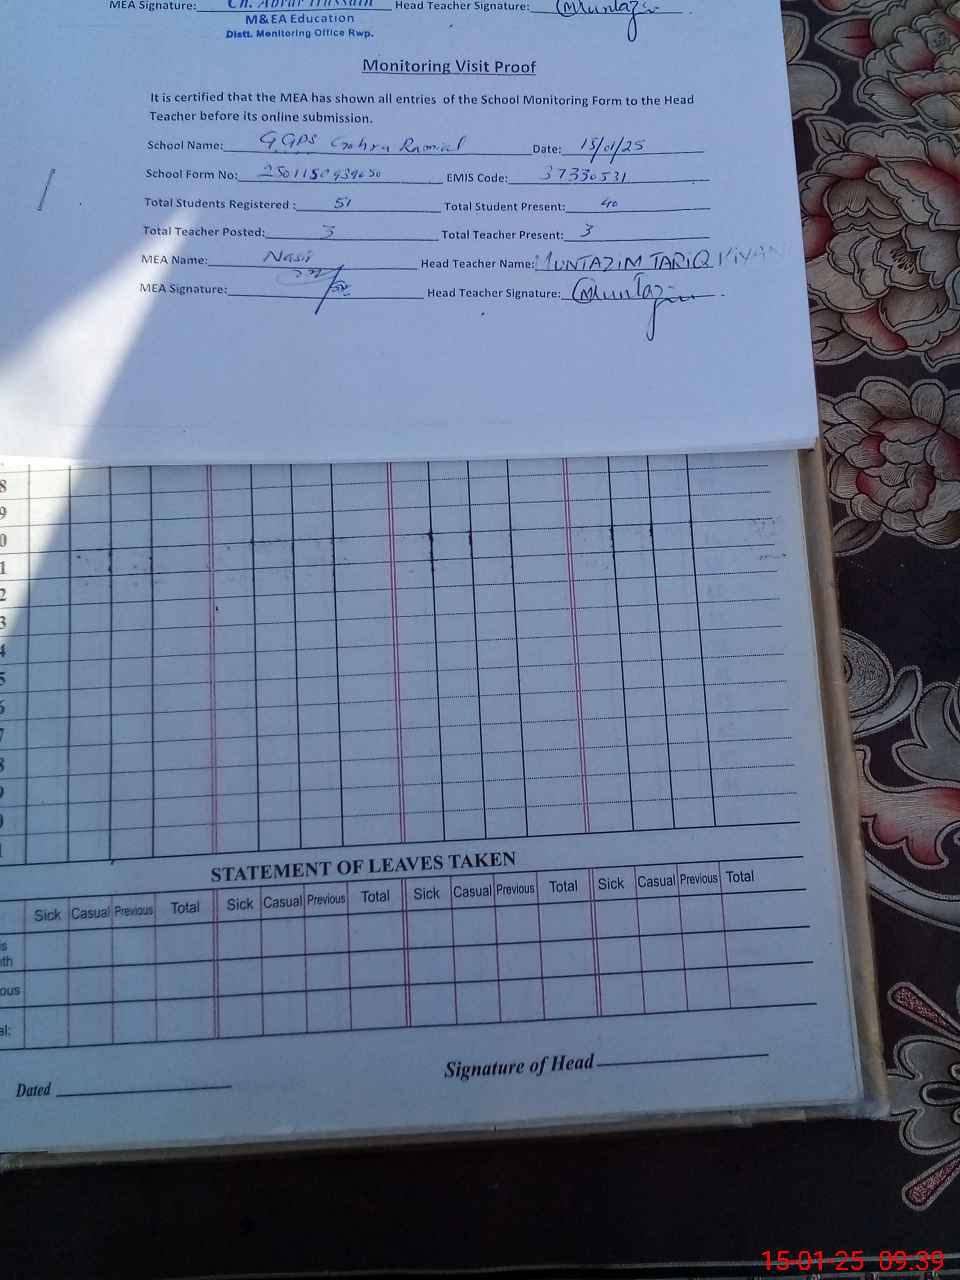 MEA Signature: Ch. Abrar Hussain Head Teacher Signature: Muntazim
M&EA Education
Distt. Monitoring Office Rwp.
Monitoring Visit Proof
It is certified that the MEA has shown all entries of the School Monitoring Form to the Head
Teacher before its online submission.
School Name: GGPS Gohra Ramial Date: 15/01/25
School Form No: EMIS Code: 37330531
Total Students Registered : 51 Total Student Present: 40
Total Teacher Posted: 3 Total Teacher Present: 3
MEA Name: Nasir Head Teacher Name: MUNTAZIM TARIQ KIYANI
MEA Signature: Head Teacher Signature: Muntazim
8
9
0
1
2
3
4
5
6
7
8
9
0
1
STATEMENT OF LEAVES TAKEN
Sick Casual Previous Total Sick Casual Previous Total Sick Casual Previous Total Sick Casual Previous Total
is
nth
ous
al:
Dated Signature of Head
15-01-25 09:39